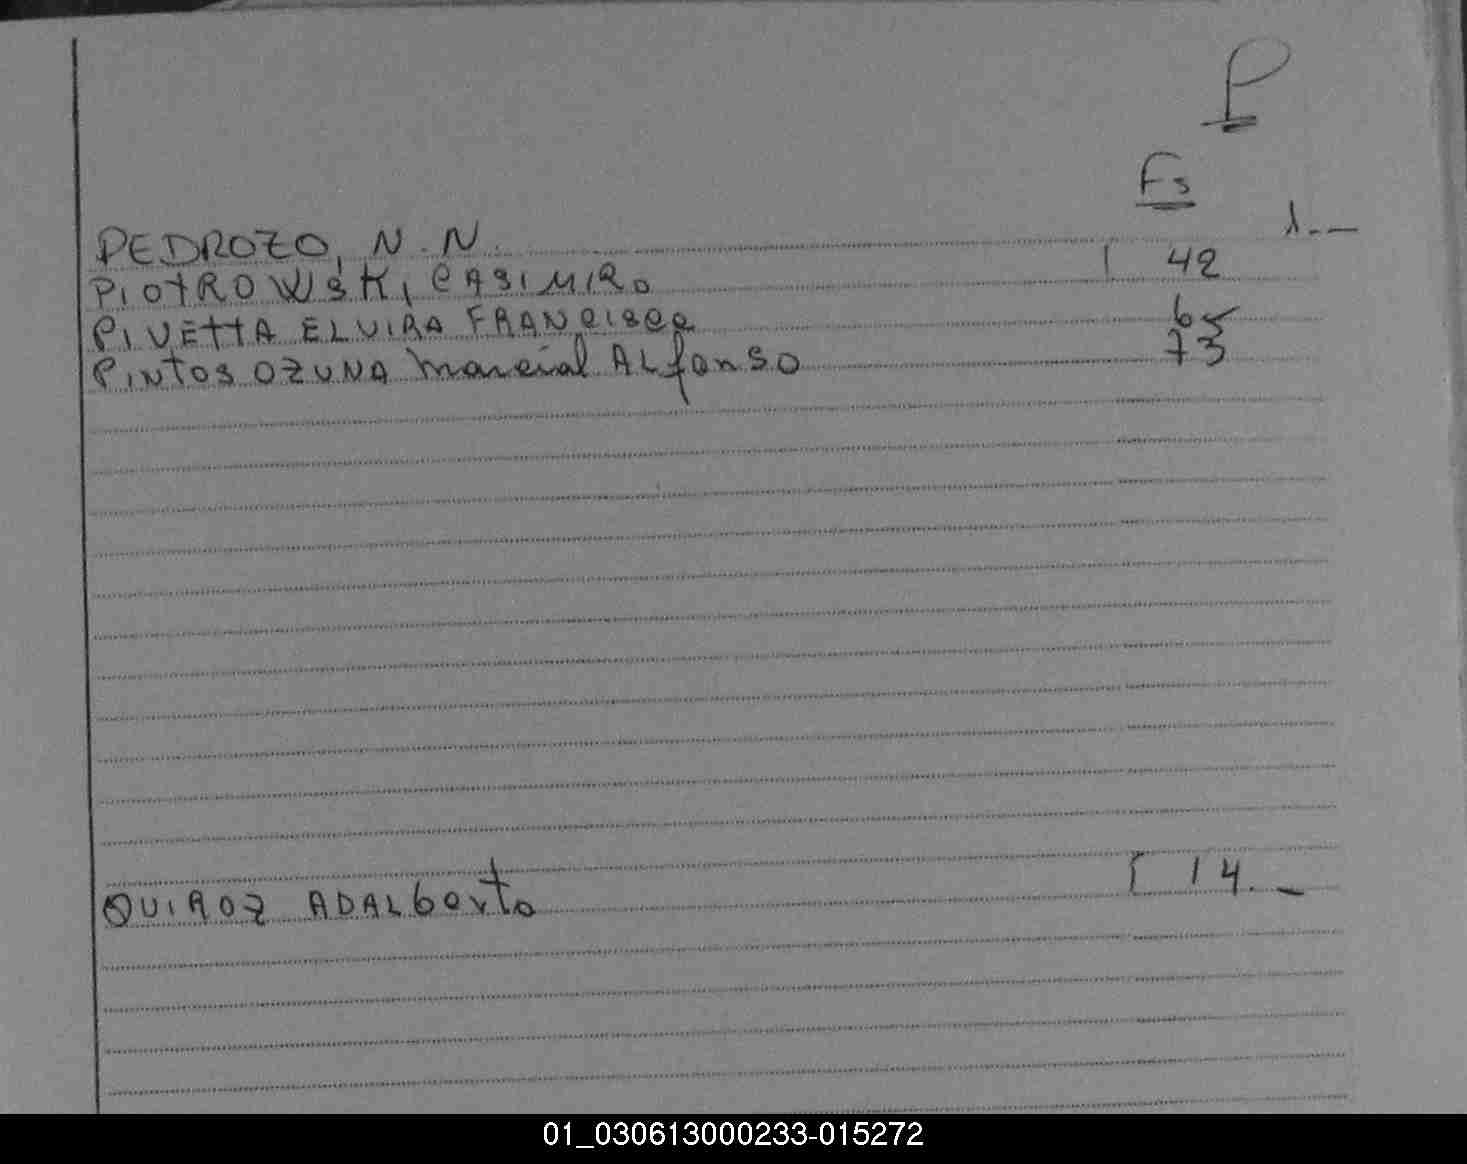 P
Fs
PEDROZO, N. N. 1.--
PIOTROWSKI CASIMIRO 42
PIVETTA ELVIRA FRANCISCA 65
PINTOS OZUNA Marcial ALfonso 73
QUIROZ ADALberto 14.-
01_030613000233-015272